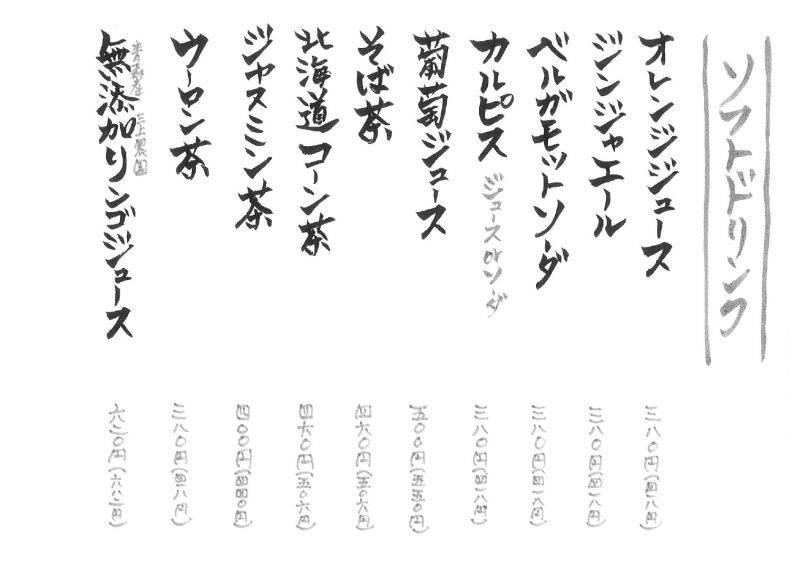 ソフトドリンク
オレンジジュース 三八〇円(四一八円)
ジンジャエール 三八〇円(四一八円)
ベルガモットソーダ 三八〇円(四一八円)
カルピス ジュースorソーダ 三八〇円(四一八円)
葡萄ジュース 五〇〇円(五五〇円)
そば茶 四六〇円(五〇六円)
北海道コーン茶 四六〇円(五〇六円)
ジャスミン茶 四〇〇円(四四〇円)
ウーロン茶 三八〇円(四一八円)
青森産 三上農園
無添加リンゴジュース 六二〇円(六八二円)